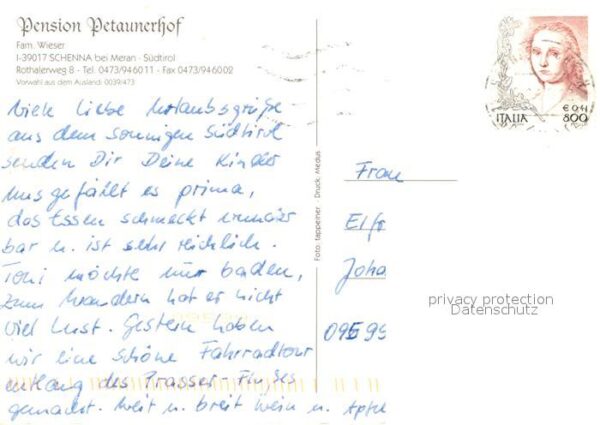 Pension Petaunerhof
Fam. Wieser
I-39017 SCHENNA bei Meran - Südtirol
Rothalerweg 8 - Tel. 0473/946011 - Fax 0473/946002
Vorwahl aus dem Ausland: 0039/473
Viele liebe Urlaubsgrüße
aus dem sonnigen Südtirol
senden Dir Deine Kinder
uns gefällt es prima,
das Essen schmeckt wunder
bar u. ist sehr reichlich.
Toni möchte nur baden,
zum Wandern hat er nicht
viel Lust. Gestern haben
wir eine schöne Fahrradtour
entlang des Prasser-Flußes
gemacht. Weit u. breit Wein u. Apfel
Foto: tappeiner - Druck: Medus
ITALIA
€ 0,41
800
Frau
Elfr
Joha
095 99
privacy protection
Datenschutz